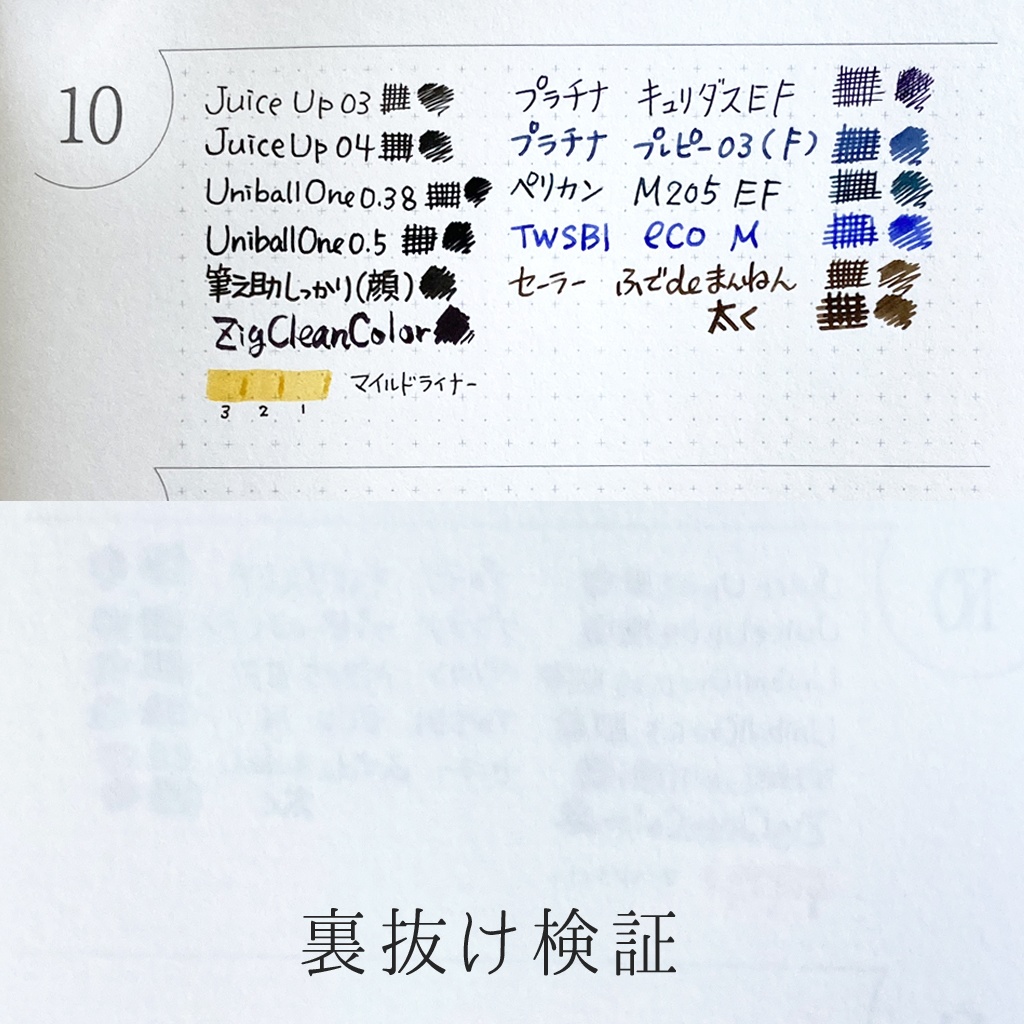 10
Juice Up 03
Juice Up 04
Uniball One 0.38
Uniball One 0.5
筆之助しっかり(顔)
Zig Clean Color
マイルドライナー
3 2 1
プラチナ キュリダス EF
プラチナ プレピー 03 (F)
ペリカン M205 EF
TWSBI eco M
セーラー ふでdeまんねん
太く
裏抜け検証